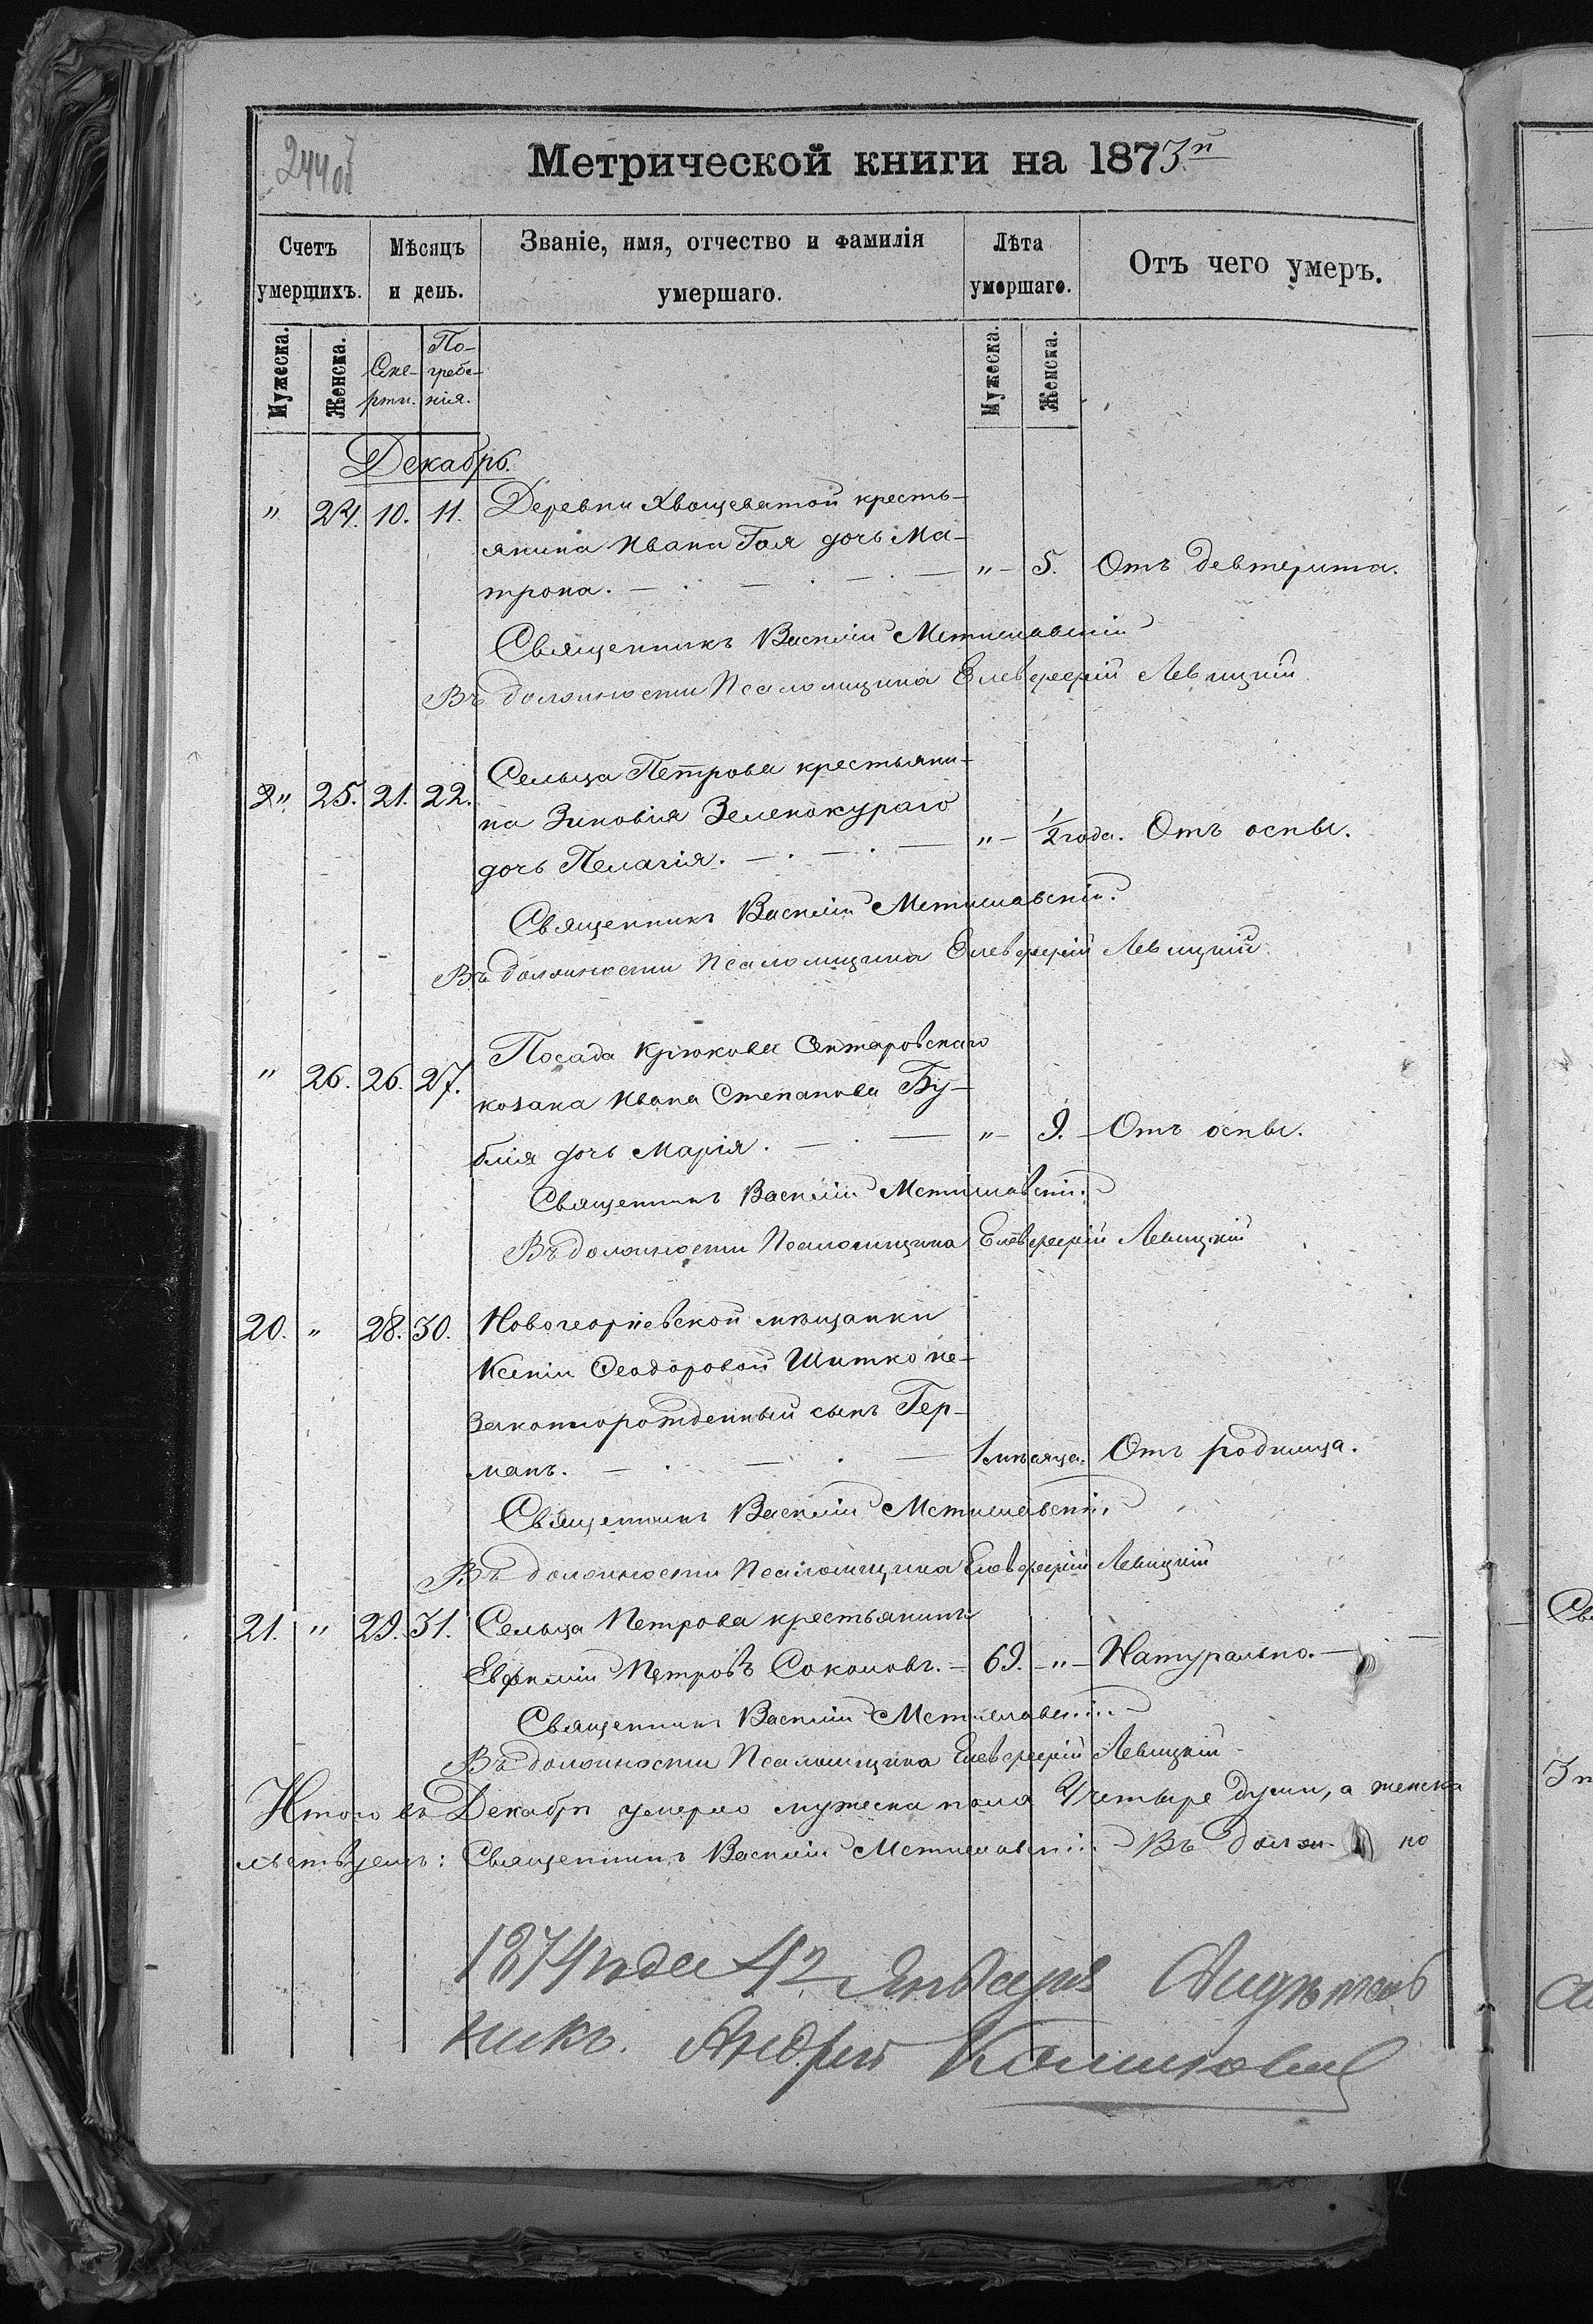 244 об
Метрической книги на 1873й
Счетъ умершихъ.
Мѣсяцъ и день.
Званіе, имя, отчество и фамилія умершаго.
Лѣта умершаго.
Отъ чего умеръ.
Мужеска. Женска. Сме-рти. По-гребе-нія. Мужеска. Женска.
Декабрь.
" 24. 10. 11. Деревни Хвощеватой кресть-
янина Ивана Гая дочь Ма-
трона. " 5. Отъ девтерита.
Священникъ Василій Мстиславскій
Въ должности Псаломщика Елевферій Левицкій
" 25. 21. 22. Сельца Петрова крестьяни-
на Зиновія Зеленокураго
дочь Пелагія. " 1/2 года. Отъ оспы.
Священникъ Василій Мстиславскій.
Въ должности Псаломщика Елевферій Левицкій
" 26. 26. 27. Посада Крюкова
козака Ивана Степанова Бу-
блія дочь Марія. " 9. Отъ оспы.
Священникъ Василій Мстиславскій
Въ должности Псаломщика Елевферій Левицкій
20. " 28. 30. Новогеоргіевской мѣщанки
Ксеніи Феодоровой Шитко не-
законнорожденный сынъ Гер-
манъ. 1 мѣсяца. Отъ родимца.
Священникъ Василій Мстиславскій
Въ должности Псаломщика Елевферій Левицкій
21. " 29. 31. Сельца Петрова крестьянинъ
Евфимій Петровъ Соколовъ. 69. " Натурально.
Священникъ Василій Мстиславскій
Въ должности Псаломщика Елевферій Левицкій
Итого въ Декабрѣ умерло мужеска пола Четыре души, а женска
Священникъ Василій Мстиславскій Въ долж но
1874 года 12 Января
никъ. Андрей